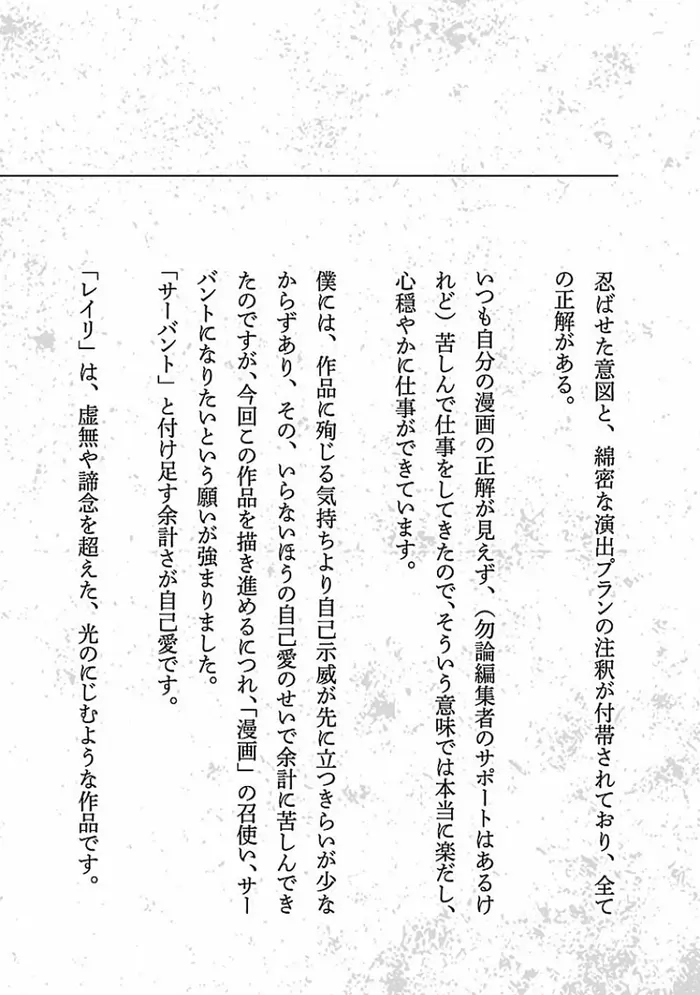 忍ばせた意図と、綿密な演出プランの注釈が付帯されており、全て
の正解がある。
いつも自分の漫画の正解が見えず、（勿論編集者のサポートはあるけ
れど）苦しんで仕事をしてきたので、そういう意味では本当に楽だし、
心穏やかに仕事ができています。
僕には、作品に殉じる気持ちより自己示威が先に立つきらいが少な
からずあり、その、いらないほうの自己愛のせいで余計に苦しんでき
たのですが、今回この作品を描き進めるにつれ、「漫画」の召使い、サー
バントになりたいという願いが強まりました。
「サーバント」と付け足す余計さが自己愛です。
「レイリ」は、虚無や諦念を超えた、光のにじむような作品です。